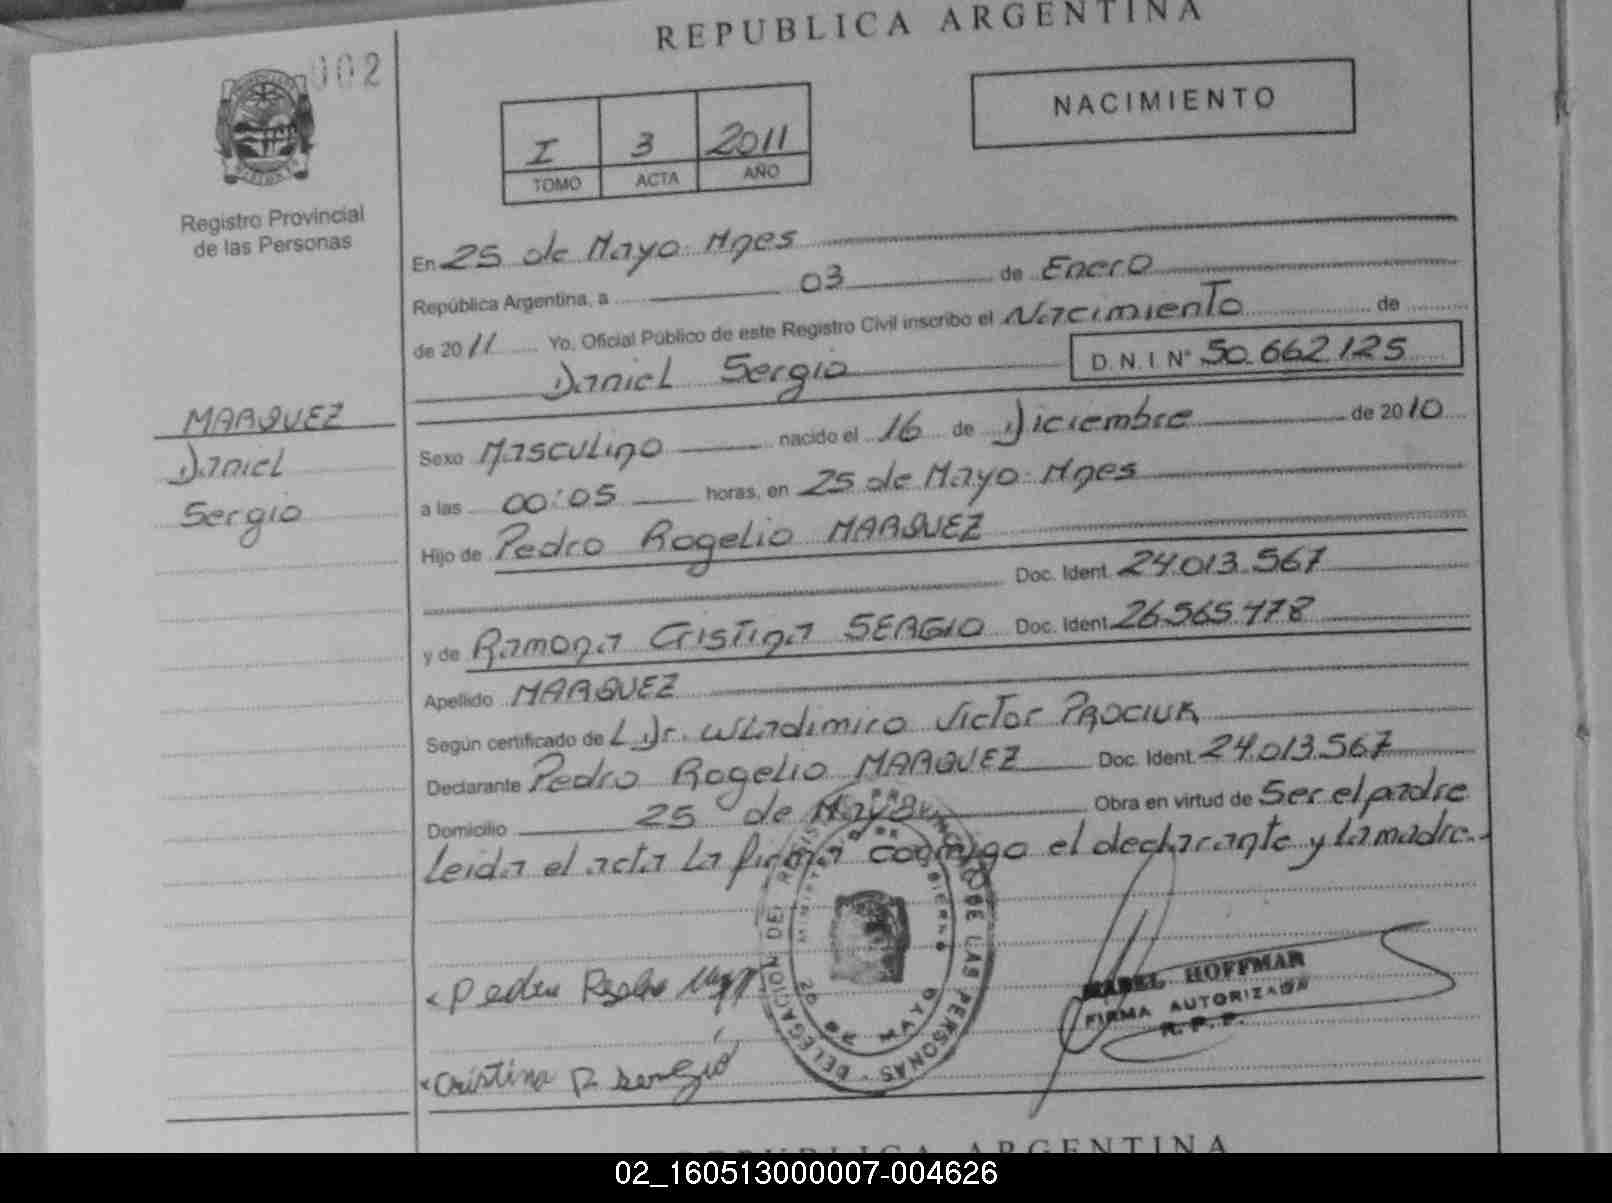 REPUBLICA ARGENTINA
002
I 3 2011
TOMO ACTA AÑO
NACIMIENTO
Registro Provincial
de las Personas
En 25 de Mayo Mnes
República Argentina, a 03 de Enero
de 2011 Yo, Oficial Público de este Registro Civil inscribo el Nacimiento de
Daniel Sergio D. N. I. N° 50.662.125
MARQUEZ
Daniel
Sergio
Sexo Masculino nacido el 16 de Diciembre de 2010
a las 00:05 horas, en 25 de Mayo Mnes
Hijo de Pedro Rogelio MARQUEZ
Doc. Ident. 24.013.567
y de Ramona Cristina SERGIO Doc. Ident. 26.565.478
Apellido MARQUEZ
Según certificado de L Dr. Wladimiro Victor PROCIUK
Declarante Pedro Rogelio MARQUEZ Doc. Ident. 24.013.567
Domicilio 25 de Mayo Obra en virtud de Ser el padre
Leida el acta la firma conmigo el declarante y la madre.
DELEGACION DEL REGISTRO PROVINCIAL DE LAS PERSONAS
MINISTERIO DE GOBIERNO
25 DE MAYO
Pedro Rogelio
MABEL HOFFMAN
FIRMA AUTORIZADA
R. P. P.
Cristina R. Sergió
REPUBLICA ARGENTINA
02_160513000007-004626